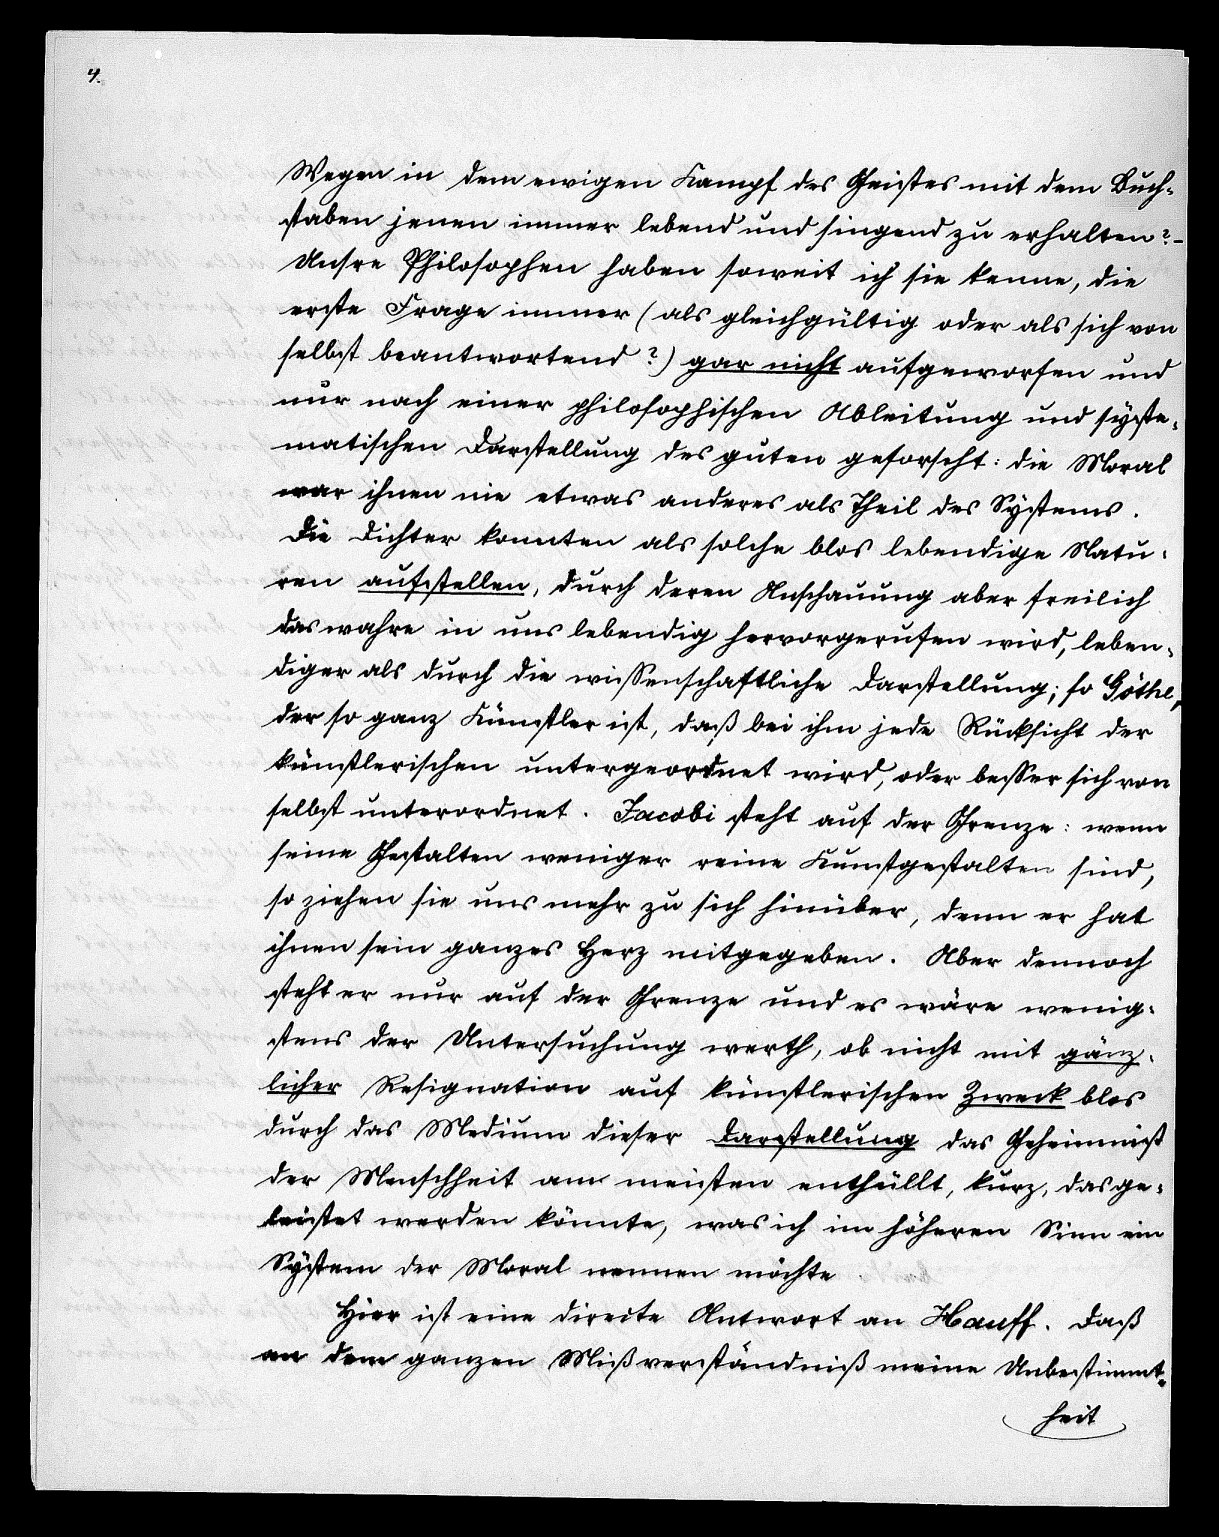 4.
Wegen in dem ewigen Kampf des Geistes mit dem Buch-
staben jenen immer lebend und singend zu erhalten?-
Unsre Philosophen haben soweit ich sie kenne, die
erste Frage immer (als gleichgültig oder als sich von
selbst beantwortend?) gar nicht aufgeworfen und
nur nach einer philosophischen Ableitung und syste-
matischen Darstellung des guten geforscht: die Moral
war ihnen nie etwas anderes als Theil des Systems.
Die Dichter konnten als solche blos lebendige Natu-
ren aufstellen, durch deren Anschauung aber freilich
das wahre in uns lebendig hervorgerufen wird, leben-
diger als durch die wissenschaftliche Darstellung; so Göthe,
der so ganz Künstler ist, daß bei ihm jede Rücksicht der
künstlerischen untergeordnet wird, oder besser sich von
selbst unterordnet. Jacobi steht auf der Grenze: wenn
seine Gestalten weniger reine Kunstgestalten sind,
so ziehen sie uns mehr zu sich hinüber, denn er hat
ihnen sein ganzes Herz mitgegeben. Aber dennoch
steht er nur auf der Grenze und es wäre wenig-
stens der Untersuchung werth, ob nicht mit gänz-
licher Resignation auf künstlerischen Zweck blos
durch das Medium dieser Darstellung das Geheimniß
der Menschheit am meisten enthüllt, kurz, das ge-
leistet werden könnte, was ich im höheren Sinn ein
System der Moral nennen möchte.
Hier ist eine directe Antwort an Hauff. Daß
an dem ganzen Mißverständniß meine Unbestimmt-
heit